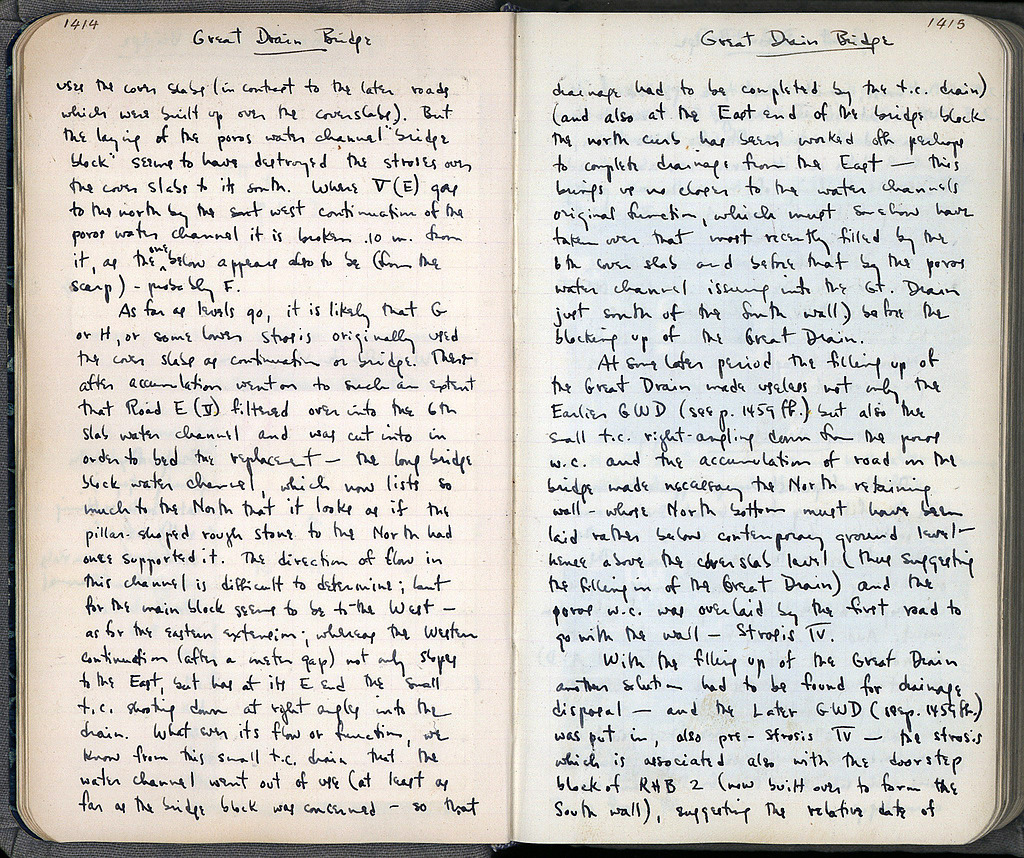 1414
Great Drain Bridge
uses the cover slabs (in contrast to the later roads
which were built up over the coverslabs). But
the laying of the poros water channel "bridge
block" seems to have destroyed the stroses over
the cover slabs to its south. Where V (E) goes
to the north by the west continuation of the
poros water channel it is broken .10 m. from
it, as the one below appears also to be (from the
scarp) - probably F.
As far as levels go, it is likely that G
or H, or some lower strosis originally used
the cover slabs as continuation or bridge. There
after accumulation went on to such an extent
that Road E (V) filtered over into the 6th
slab water channel and was cut into in
order to bed the replacement — the long bridge
block water channel, which now lists so
much to the North that it looks as if the
pillar-shaped rough stone to the North had
once supported it. The direction of flow in
this channel is difficult to determine; but
for the main block seems to be to the West —
as for the eastern extension; whereas the Western
continuation (after a meter gap) not only slopes
to the East, but has at its E end the small
t.c. shooting down at right angles into the
drain. What ever its flow or function, we
know from this small t.c. drain that the
water channel went out of use (at least as
far as the bridge block was concerned - so that
1415
Great Drain Bridge
drainage had to be completed by the t.c. drain)
(and also at the East end of the bridge block
the north curb has been worked off perhaps
to complete drainage from the East — this
brings us no closer to the water channels
original function, which must somehow have
taken over that most recently filled by the
6th cover slab and before that by the poros
water channel issuing into the Gt. Drain
just south of the South wall) before the
blocking up of the Great Drain.
At some later period the filling up of
the Great Drain made useless not only the
Earlier GWD (see p. 1459 ff.) but also the
small t.c. right-angling down from the poros
w.c. and the accumulation of road on the
bridge made necessary the North retaining
wall - whose North bottom must have been
laid rather below contemporary ground level -
hence above the coverslab level (thus suggesting
the filling in of the Great Drain) and the
poros w.c. was overlaid by the first road to
go with the wall — Strosis IV.
With the filling up of the Great Drain
another solution had to be found for drainage
disposal — and the Later GWD (see p. 1459 ff.)
was put in, also pre - Strosis IV — the strosis
which is associated also with the doorstep
block of RHB 2 (now built over to form the
South wall), suggesting the relative date of